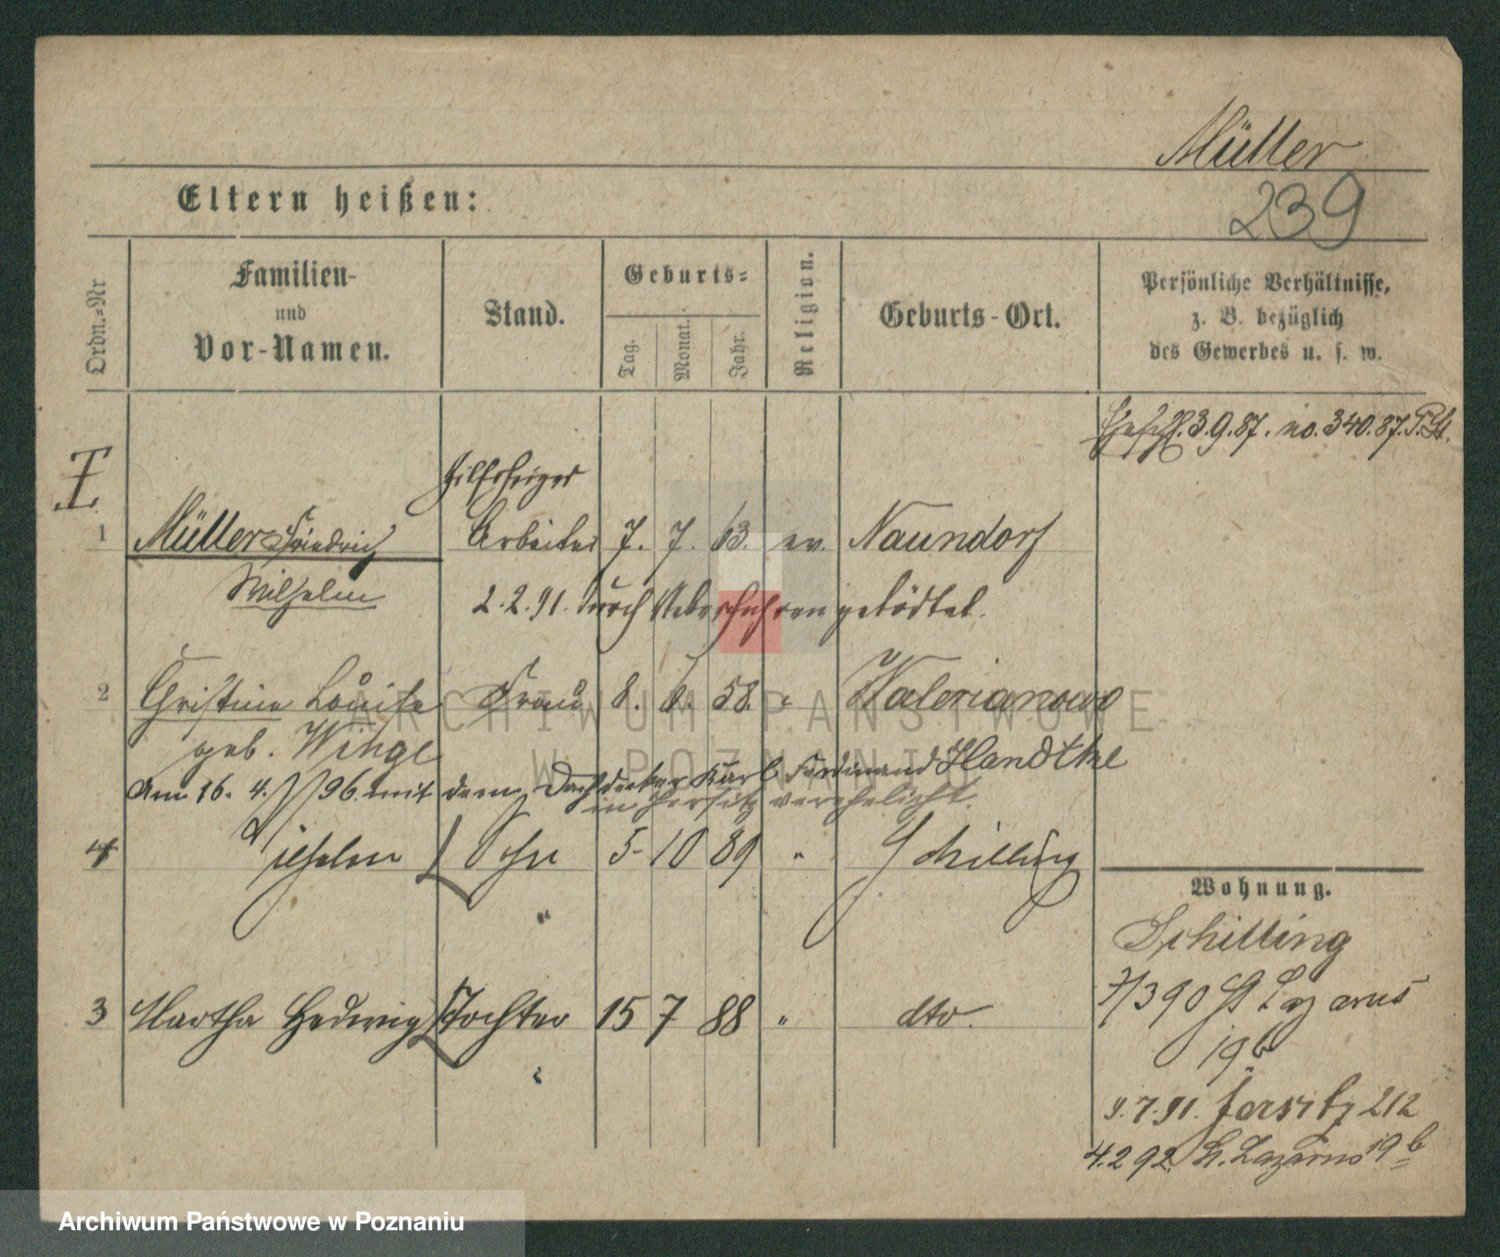 Müller
239
Eltern heißen:
Ordn.-Nr
Familien-
und
Vor-Namen.
Stand.
Geburts-
Tag.
Monat.
Jahr.
Religion.
Geburts-Ort.
Persönliche Verhältnisse,
z. B. bezüglich
des Gewerbes u. s. w.
3.9.87. no. 340.87.
I
1 Müller Friedrich Arbeiter 7. 7. 63. ev. Naundorf
Wilhelm 2.2.91. durch Ueberfahren getödtet.
2 Christine Louise Frau 8. 58. " Walerianowo
geb.
Am 16. 4. 96. mit dem Dachdecker Karl Ferdinand Handtke
in Jersitz verehelicht.
4 Wilhelm Sohn 5 10 89 " Schilling
"
3 Martha Hedwig Tochter 15 7 88 " dto.
Wohnung.
Schilling
7/390 St Lazarus
19b
9.7.91. Jersitz 212
4.2 92. St. Lazarus 19b
ARCHIWUM PAŃSTWOWE
W POZNANIU
Archiwum Państwowe w Poznaniu